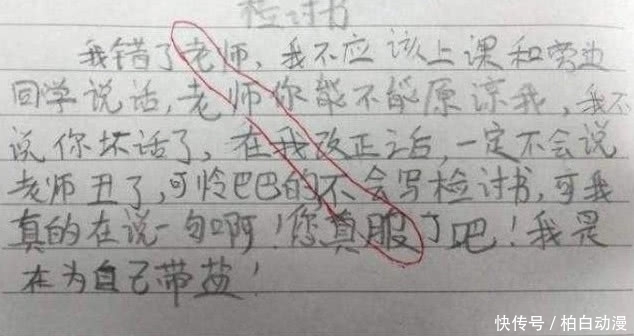 检讨书
我错了老师，我不应该上课和旁边
同学说话，老师你能不能原谅我，我不
说你坏话了，在我改正之后，一定不会说
老师丑了，可怜巴巴的不会写检讨书，可我
真的在说一句啊！您真服了吧！我是
在为自己带盐！
快传号 / 柏白动漫